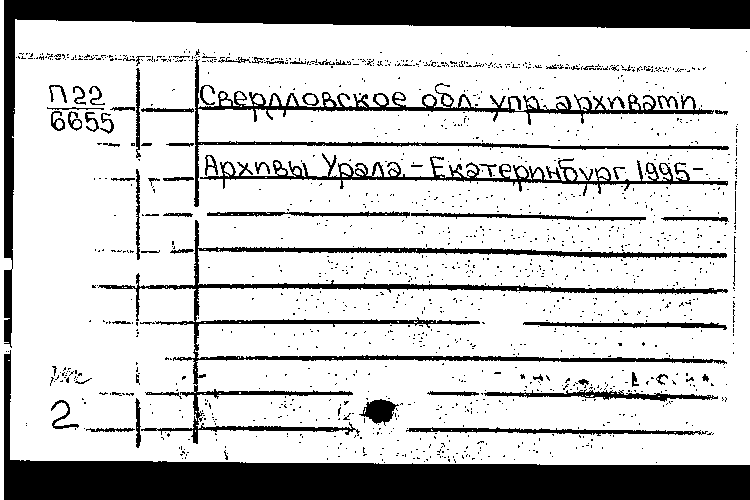 П22
6655
Свердловское обл. упр. архивами
Архивы Урала. - Екатеринбург, 1995-
2